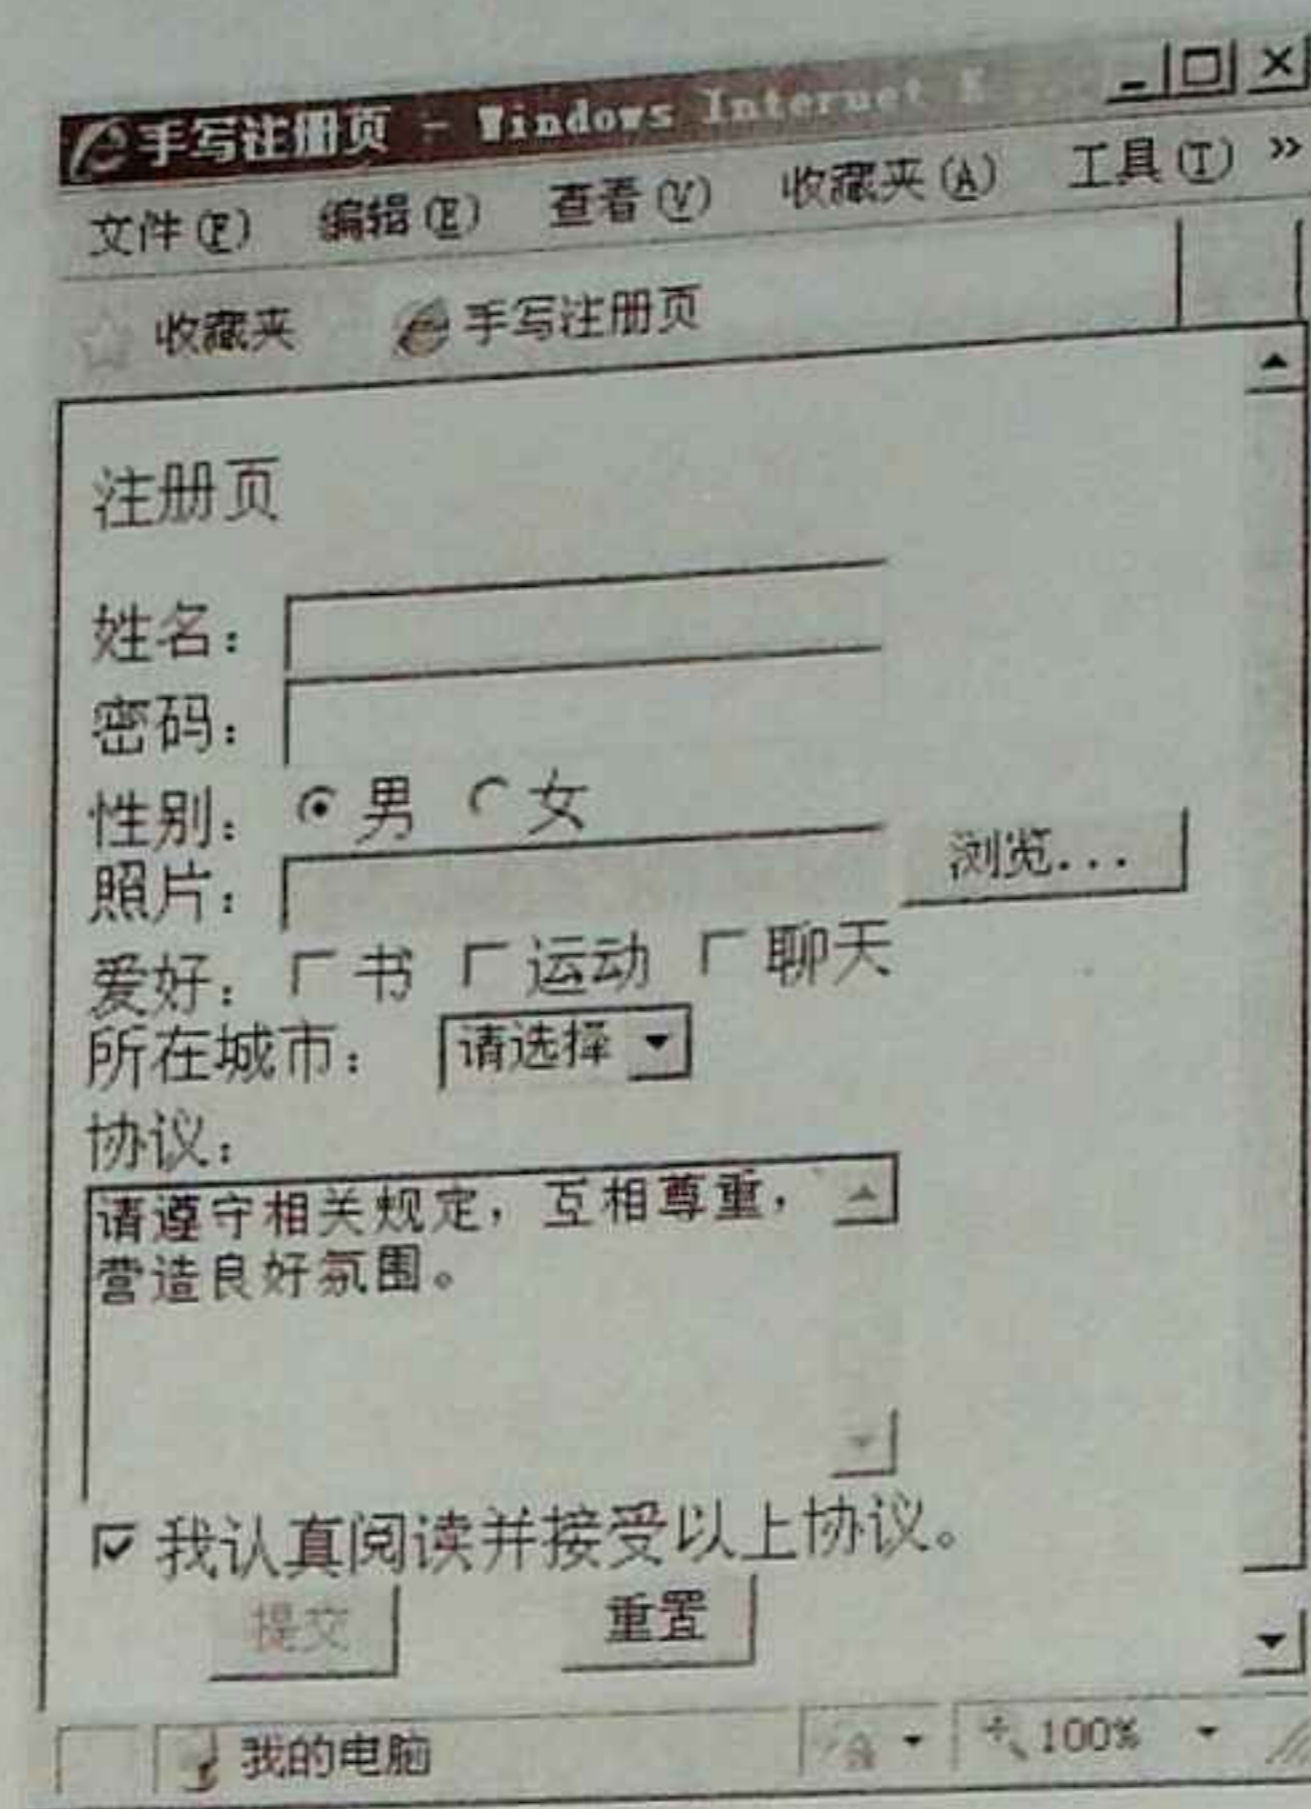 手写注册页 - Windows Internet E
文件(F) 编辑(E) 查看(V) 收藏夹(A) 工具(T) »
收藏夹 手写注册页
注册页
姓名：
密码：
性别： 男 女
照片： 浏览...
爱好： 书 运动 聊天
所在城市： 请选择
协议：
请遵守相关规定，互相尊重，
营造良好氛围。
我认真阅读并接受以上协议。
提交 重置
我的电脑 100%